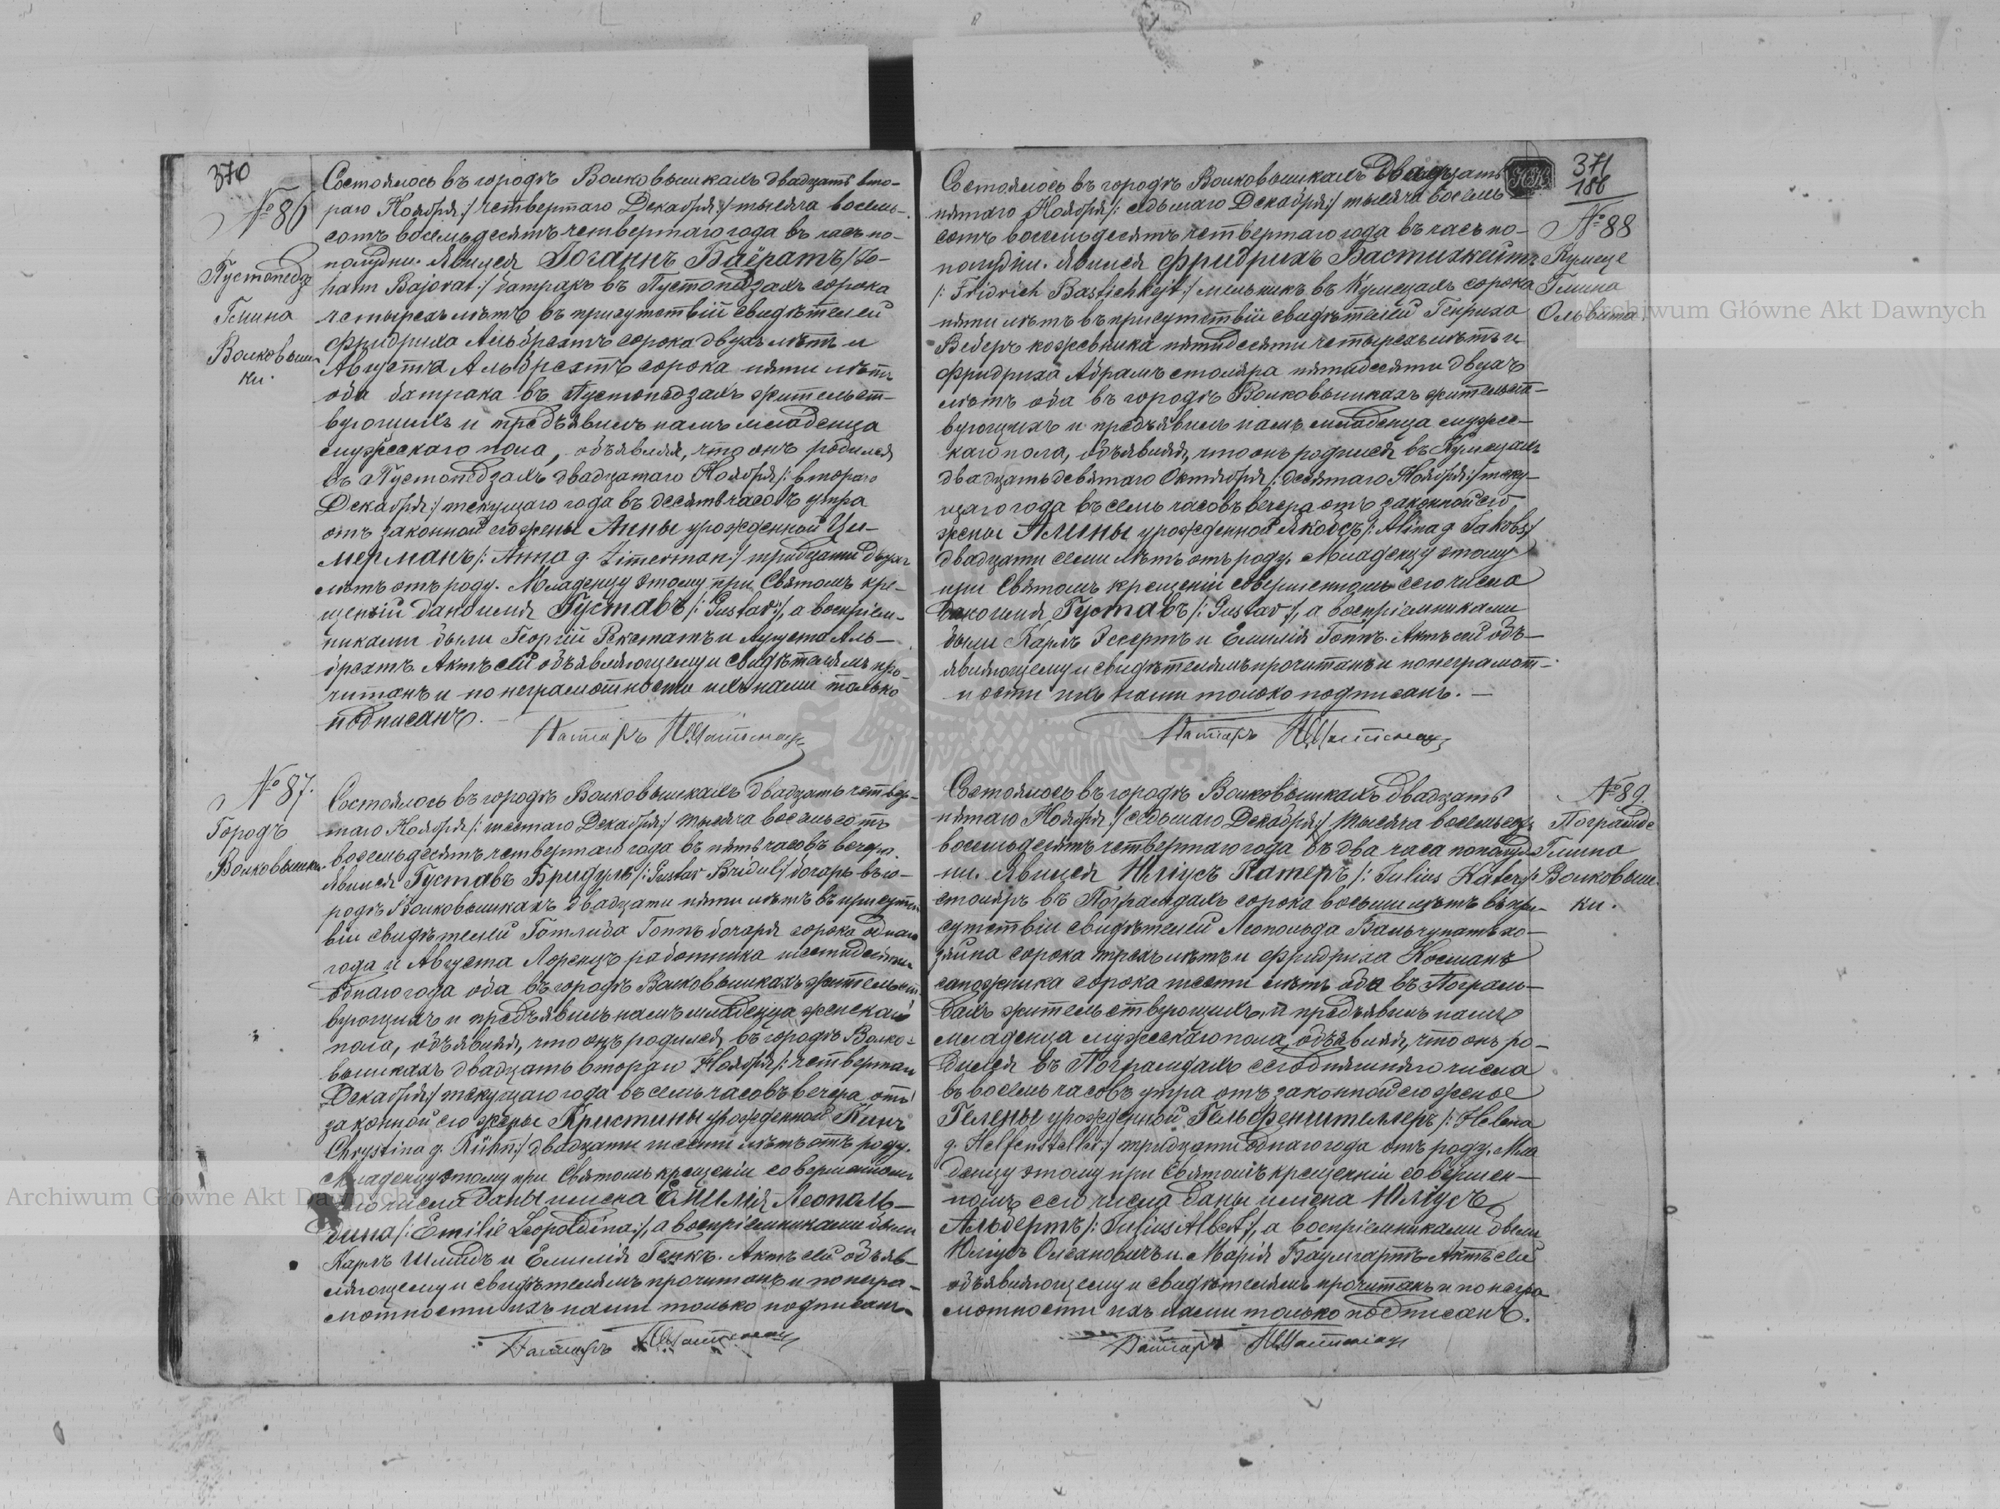 370
№ 86
Пустопедзе
Гмина
Волковыш-
ки.
Состоялось въ городѣ Волковышкахъ двадцать вто-
раго Ноября /: четвертаго Декабря :/ тысяча восемь-
сотъ восемьдесятъ четвертаго года въ часъ по-
полудни. Явился Іоганнъ Баёратъ /: Jo-
hann Bajorat :/ батракъ въ Пустопедзахъ сорока
четырехъ лѣтъ въ присутствіи свидѣтелей
Фридриха Альбрехтъ сорока двухъ лѣтъ и
Августа Альбрехтъ сорока пяти лѣтъ
оба батрака въ Пустопедзахъ жительст-
вующихъ и предъявилъ намъ младенца
мужескаго пола, объявляя, что онъ родился
въ Пустопедзахъ двадцатаго Ноября /: втораго
Декабря :/ текущаго года въ десять часовъ утра
отъ законной его жены Анны урожденной Ци-
мерманъ /: Anna g Zimerman :/ тридцати двухъ
лѣтъ отъ роду. Младенцу этому при Святомъ кре-
щеніи дано имя Густавъ /: Gustav :/, а воспріем-
никами были Георгій Рекстатъ и Аугуста Аль-
брехтъ. Актъ сей объявляющему и свидѣтелямъ про-
читанъ и по неграмотности ихъ нами только
подписанъ.
Пасторъ
№ 87.
Городъ
Волковышки
Состоялось въ городѣ Волковышкахъ двадцать четвер-
таго Ноября /: шестаго Декабря :/ тысяча восемьсотъ
восемьдесятъ четвертаго года въ пять часовъ вечера.
Явился Густавъ Бридуль /: Gustav Bridul :/ бочаръ въ го-
родѣ Волковышкахъ двадцати пяти лѣтъ въ присутст-
віи свидѣтелей Готлиба Гоппъ бочаря сорока однаго
года и Августа Лоренцъ работника шестидесяти
однаго года оба въ городѣ Волковышкахъ жительст-
вующихъ и предъявилъ намъ младенца женскаго
пола, объявляя, что онъ родился въ городѣ Волко-
вышкахъ двадцать втораго Ноября /: четвертаго
Декабря :/ текущаго года въ семь часовъ вечера отъ
законной его жены Кристины урожденной Кинъ
Chrystina g. Kühn :/ двадцати шести лѣтъ отъ роду.
Младенцу этому при Святомъ крещеніи совершенномъ
числа даны имена Емилія Леополь-
дина /: Emilie Leopoldina :/, а воспріемниками были
Карлъ Шмидъ и Емилія Генкъ. Актъ сей объяв-
ляющему и свидѣтелямъ прочитанъ и по негра-
мотности ихъ нами только подписанъ
Пасторъ
371
186
№ 88
Кумеце
Гмина
Ольвита
Состоялось въ городѣ Волковышкахъ двадцать
пятаго Ноября /: седьмаго Декабря :/ тысяча восемь-
сотъ восемьдесятъ четвертаго года въ часъ по-
полудни. Явился Фридрихъ Бастихкейтъ
/: Fridrich Bastichkejt :/ мельникъ въ Кумецахъ сорока
пяти лѣтъ въ присутствіи свидѣтелей Генриха
Веберъ кожевника пятидесяти четырехъ лѣтъ и
Фридриха Абрамъ столяра пятидесяти двухъ
лѣтъ оба въ городѣ Волковышкахъ жительст-
вующихъ и предъявилъ намъ младенца мужес-
каго пола, объявляя, что онъ родился въ Кумецахъ
двадцать девятаго Октября /: десятаго Ноября :/ теку-
щаго года въ семь часовъ вечера отъ законной его
жены Алины урожденной Якобсъ /: Alina g Jakobs :/
двадцати семи лѣтъ отъ роду. Младенцу этому
при Святомъ крещеніи совершенномъ сего числа
дано имя Густавъ /: Gustav :/, а воспріемниками
были Карлъ Эссертъ и Емилія Гоппъ. Актъ сей объ-
являющему и свидѣтелямъ прочитанъ и по неграмот-
ности ихъ нами только подписанъ. —
Пасторъ
№ 89
Пограмде
Гмина
Волковыш-
ки.
Состоялось въ городѣ Волковышкахъ двадцать
пятаго Ноября /: седьмаго Декабря :/ тысяча восемьсотъ
восемьдесятъ четвертаго года въ два часа пополуд-
ни. Явился Юліусъ Катеръ /: Julius Kater :/
столяръ въ Пограмдахъ сорока восьми лѣтъ въ при-
сутствіи свидѣтелей Леопольда Вальчунатъ хо-
зяина сорока трехъ лѣтъ и Фридриха Косманъ
сапожника сорока шести лѣтъ оба въ Пограм-
дахъ жительствующихъ, и предъявилъ намъ
младенца мужескаго пола, объявляя, что онъ ро-
дился въ Пограмдахъ сегодняшняго числа
въ восемь часовъ утра отъ законной его жены
Гелены урожденной Гельфенштеллеръ /: Helena
g. Helfensteller :/ тридцати однаго года отъ роду. Мла-
денцу этому при Святомъ крещеніи совершен-
номъ сего числа даны имена Юліусъ
Альбертъ /: Julius Albert :/, а воспріемниками были
Юліусъ Олехновичъ и Марія Баумгартъ. Актъ сей
объявляющему и свидѣтелямъ прочитанъ и по негра
мотности ихъ нами только подписанъ.
Пасторъ
Archiwum Główne Akt Dawnych
Archiwum Główne Akt Dawnych